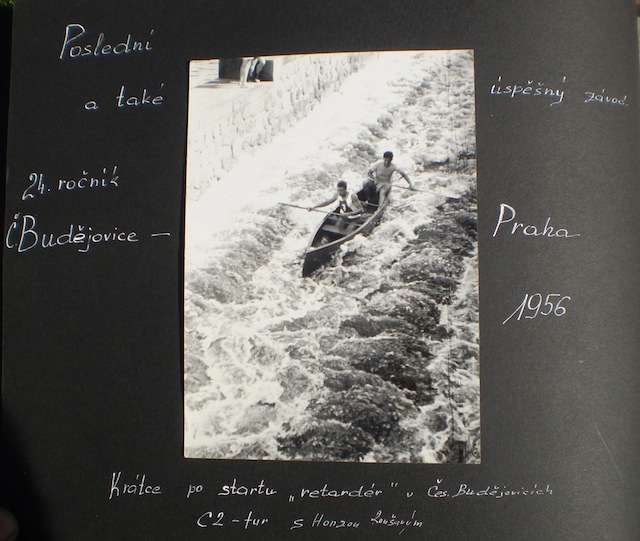 Poslední
a také úspěšný závod.
24. ročník
Č Budějovice – Praha
1956
Krátce po startu „retardér" v Čes. Budějovicích
C2 – tur s Honzou